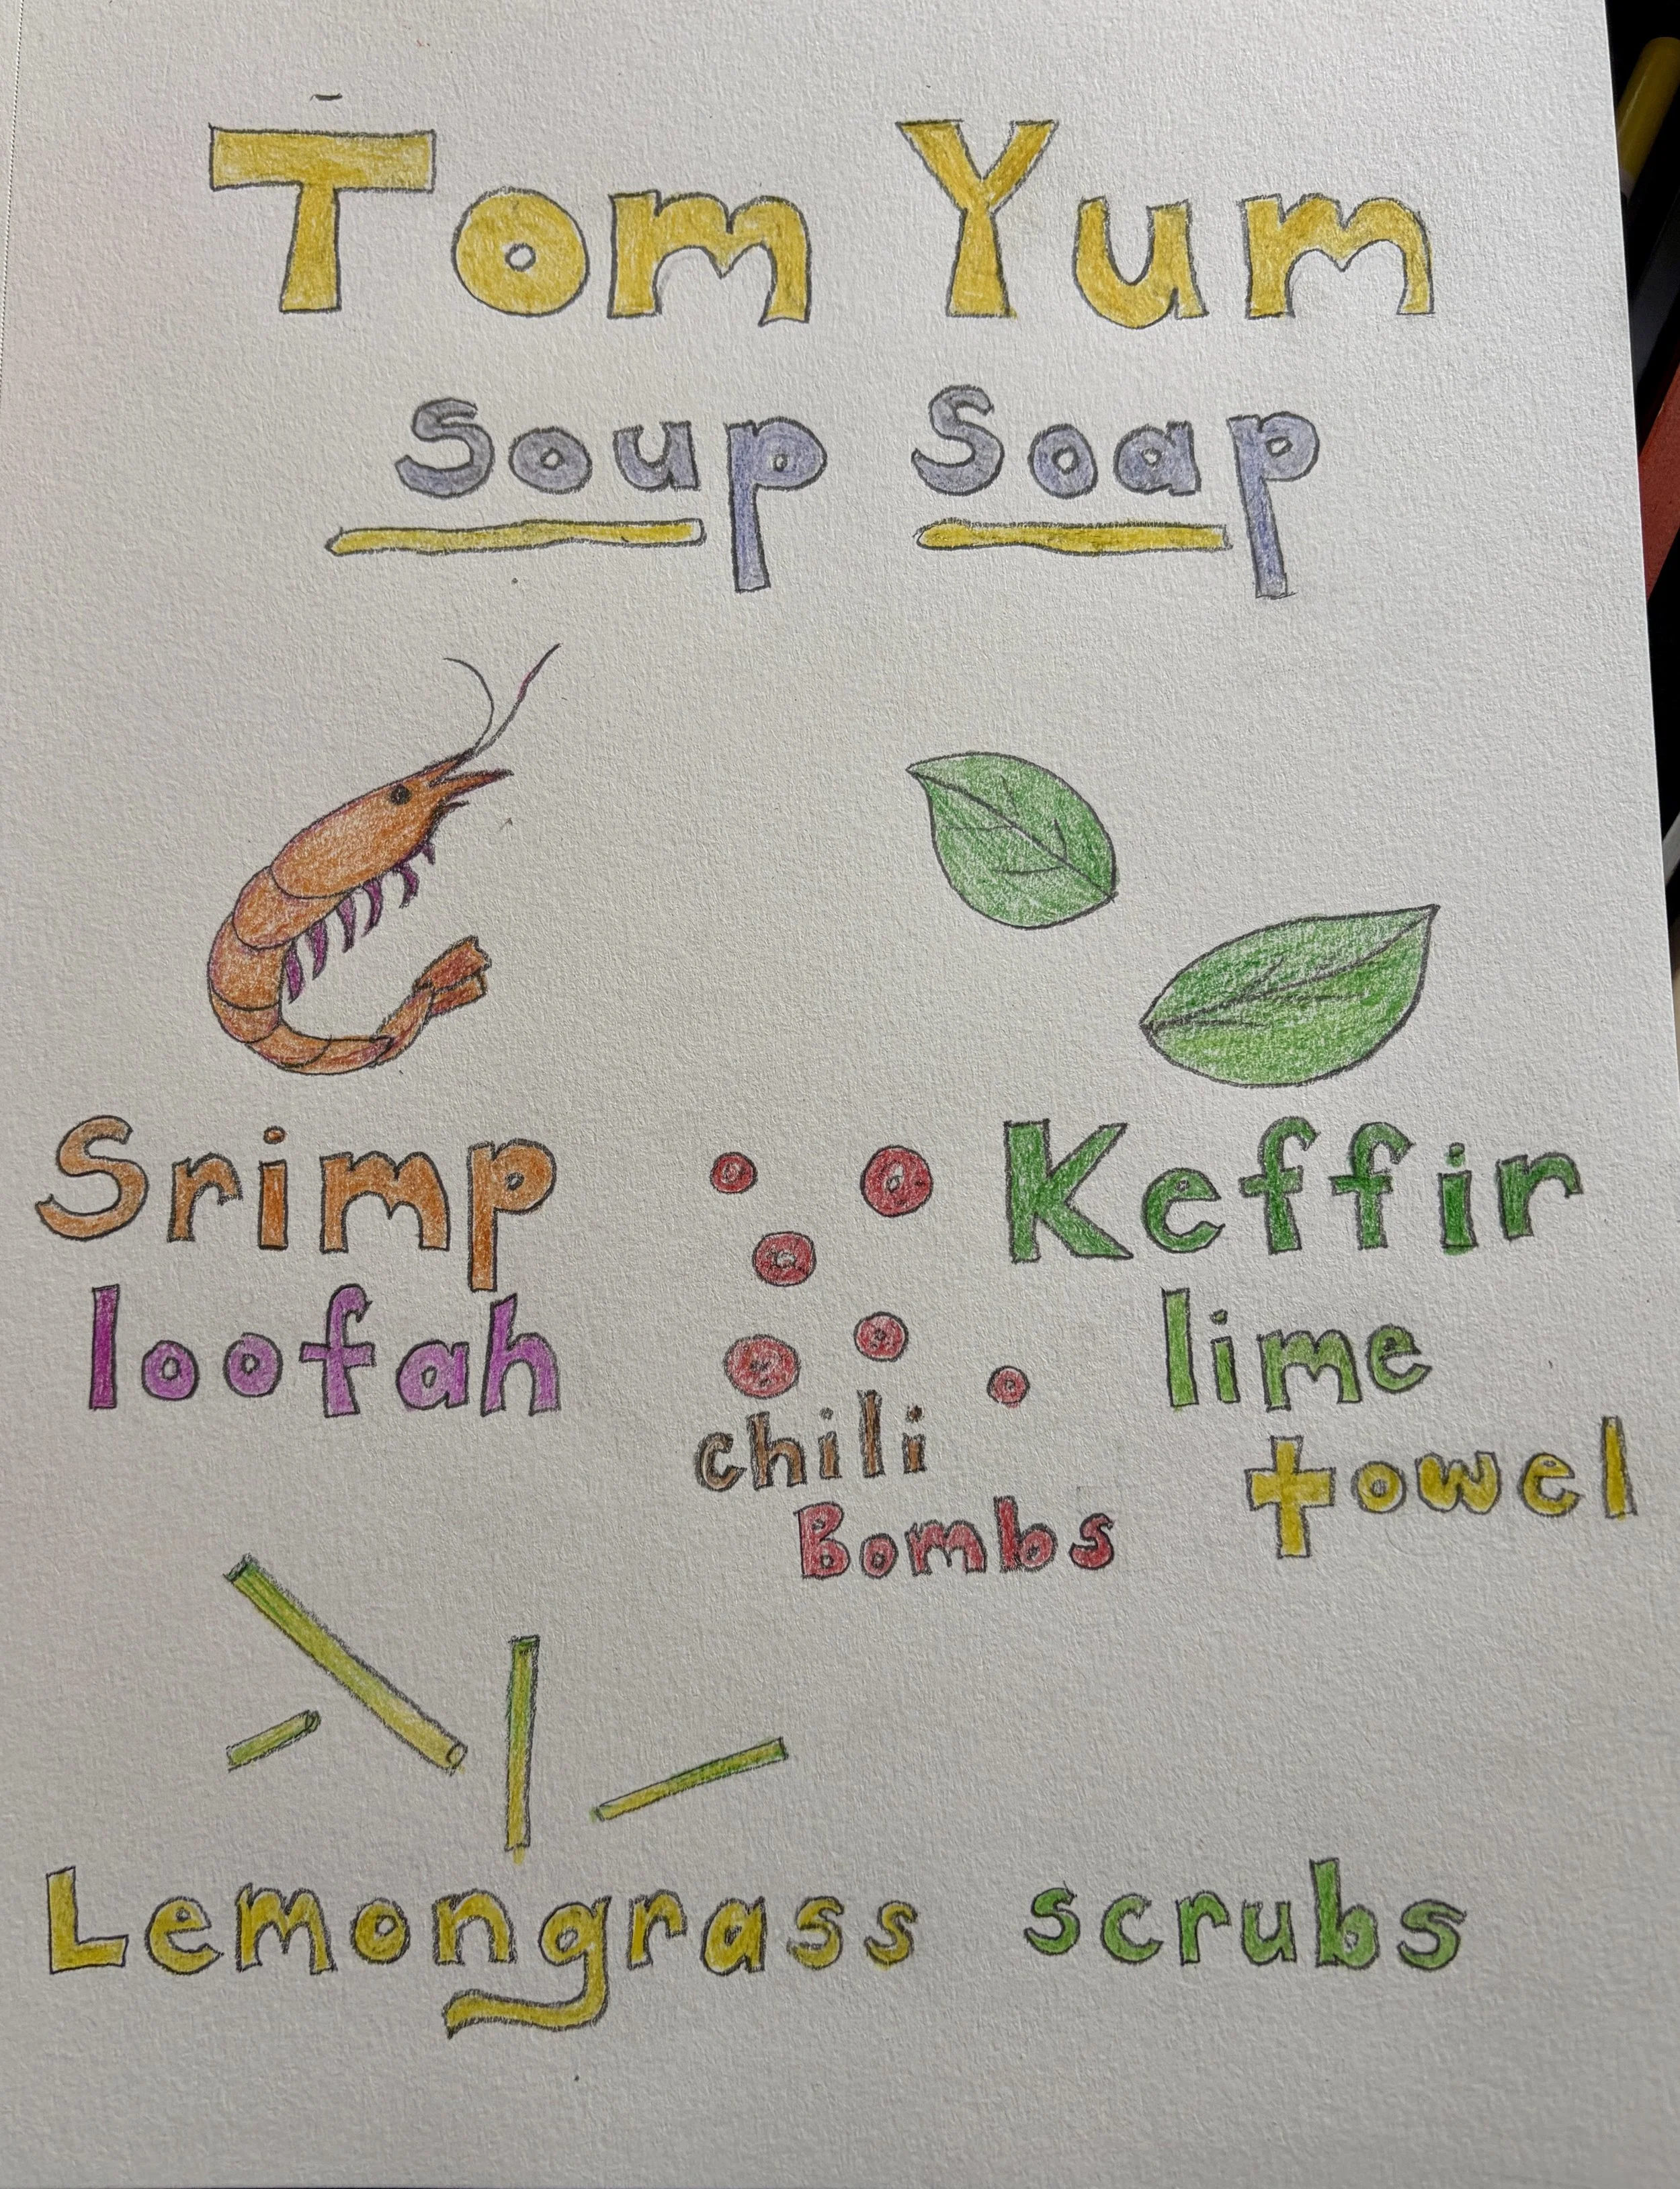 Tom Yum
Soup Soap
Srimp
loofah
chili
Bombs
Keffir
lime
towel
Lemongrass scrubs